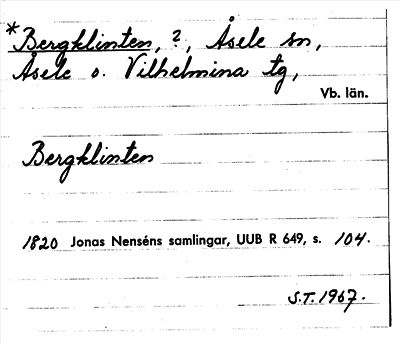 *Bergklinten, ?, Åsele sn,
Åsele o. Vilhelmina tg,
Vb. län.
Bergklinten
1820 Jonas Nenséns samlingar, UUB R 649, s. 104.
S.T. 1967.